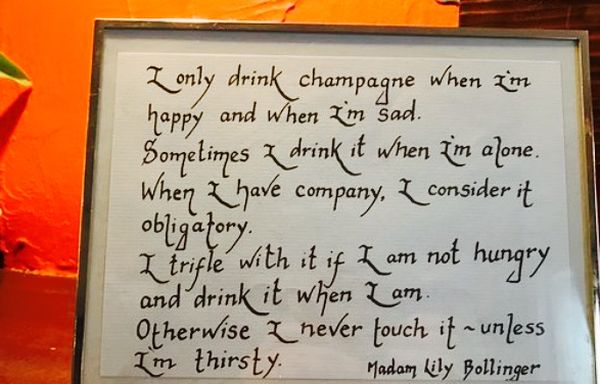 I only drink champagne when I'm
happy and when I'm sad.
Sometimes I drink it when I'm alone.
When I have company, I consider it
obligatory.
I trifle with it if I am not hungry
and drink it when I am.
Otherwise I never touch it ~ unless
I'm thirsty.
Madam Lily Bollinger